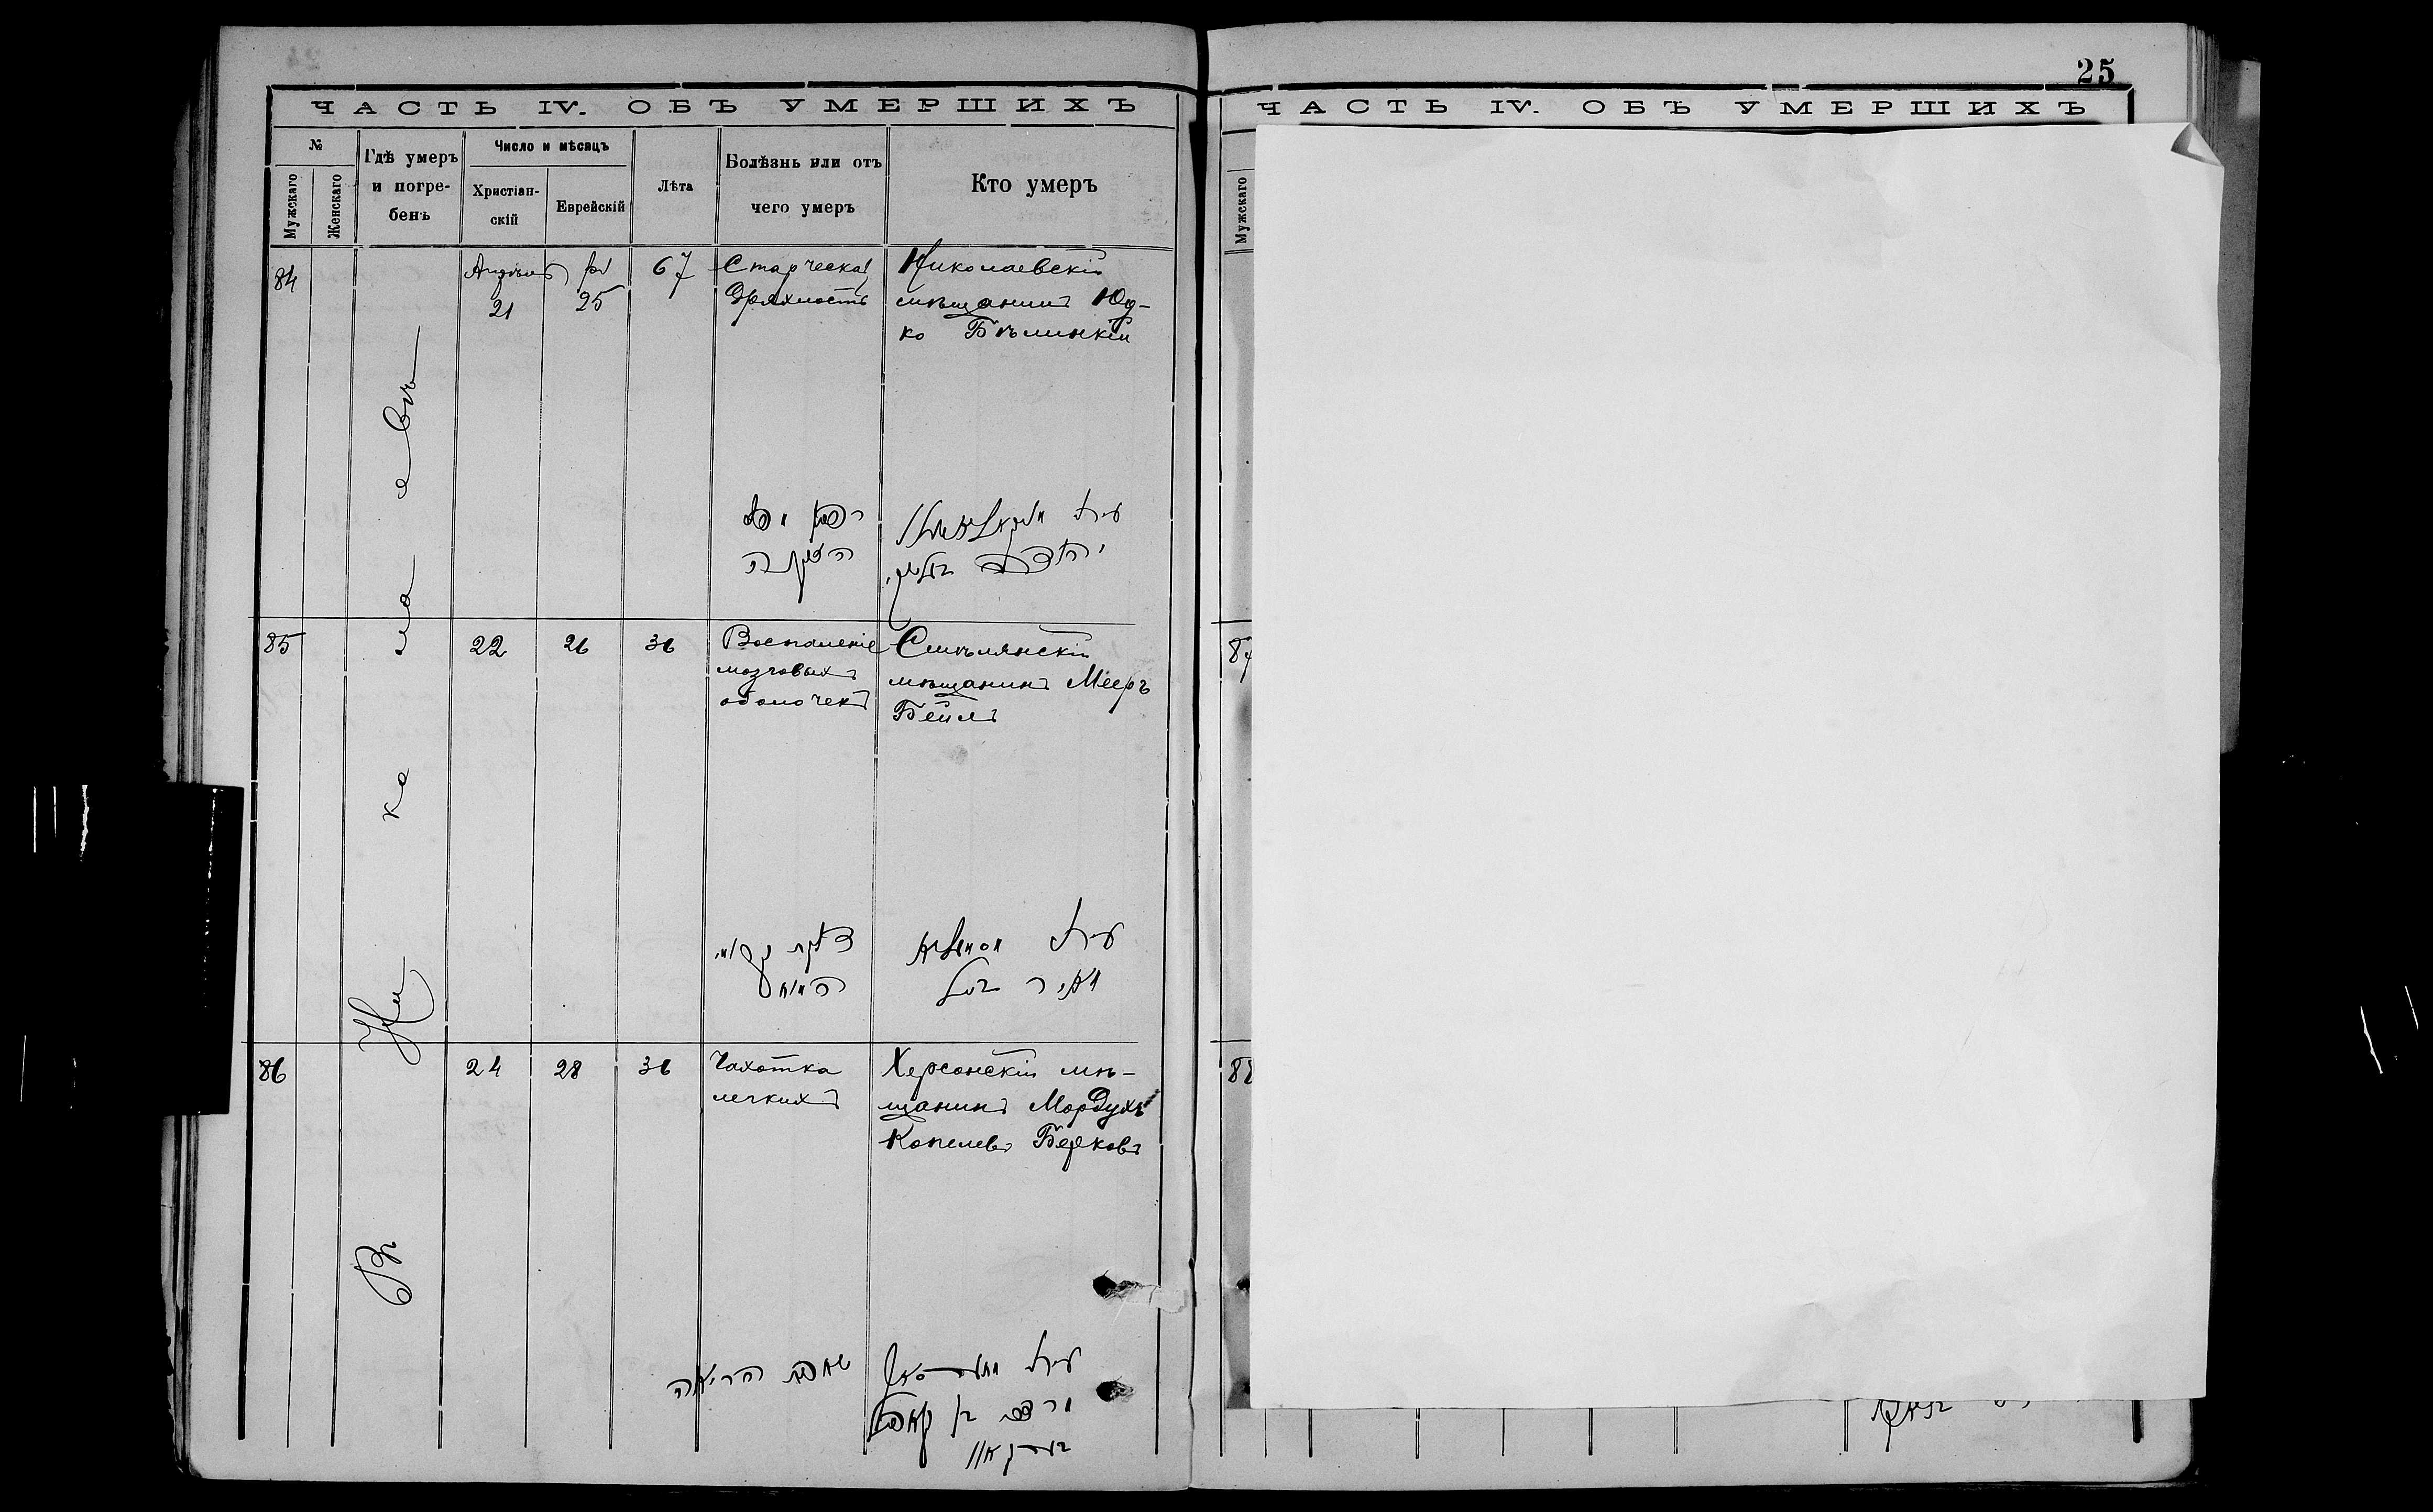 ЧАСТЬ IV. ОБЪ УМЕРШИХЪ
№
Мужскаго
Женскаго
Гдѣ умеръ
и погре-
бенъ
Число и мѣсяцъ
Христіан-
скій
Еврейскій
Лѣта
Болѣзнь или отъ
чего умеръ
Кто умеръ
Въ Николаевѣ
84
Апрѣль
21
25
67
Старческая
дряхлость
Николаевскій
мѣщанинъ Юд-
ко Бѣлинкій
הזקנה
85
22
26
36
Воспаленіе
мозговыхъ
оболочекъ
Смѣлянскій
мѣщанинъ Мееръ
Бейлъ
דלקת קרום
המוח
מאיר
86
24
28
36
Чахотка
легкихъ
Херсонскій мѣ-
щанинъ Мордухъ
Копелевъ Берковъ
שחפת הריאה
25
ЧАСТЬ IV. ОБЪ УМЕРШИХЪ
Мужскаго
87
88